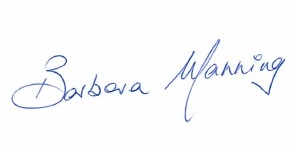 Barbara Manning